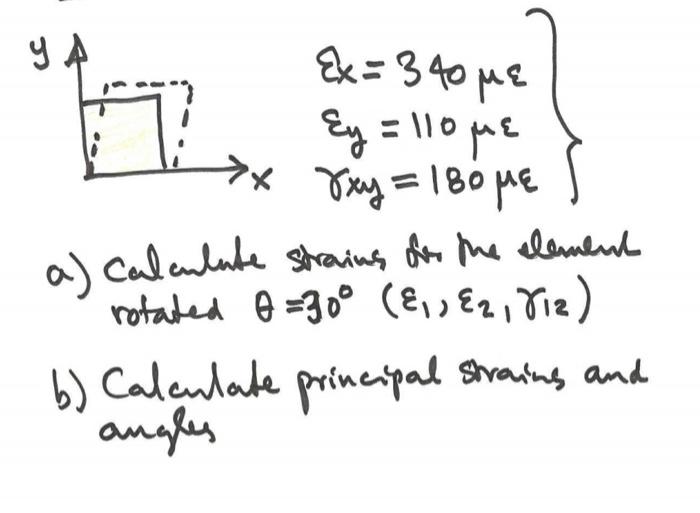 y
εx = 340 με
εy = 110 με
γxy = 180 με
x
a) Calculate strains for the element
rotated θ = 30° (ε1, ε2, γ12)
b) Calculate principal strains and
angles